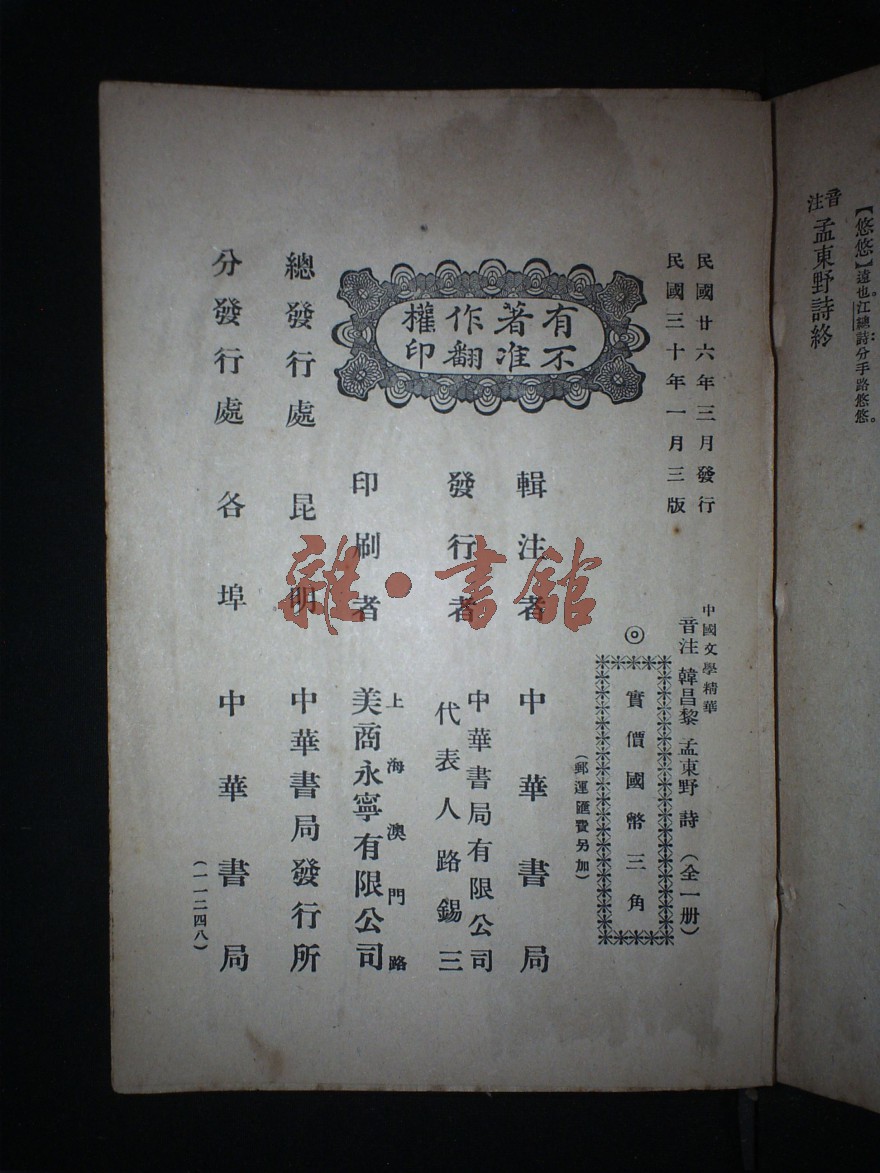 【悠悠】遠也。江總詩:分手路悠悠。
音注 孟東野詩終
民國廿六年三月發行
民國三十年一月三版
中國文學精華
音注 韓昌黎 孟東野 詩 (全一册)
◎ 實價國幣三角
(郵運匯費另加)
有著作權
不准翻印
輯注者 中華書局
發行者 中華書局有限公司
代表人路錫三
印刷者 上海澳門路
美商永寧有限公司
總發行處 昆明 中華書局發行所
分發行處 各埠 中華書局
(一一二四八)
雜·書館